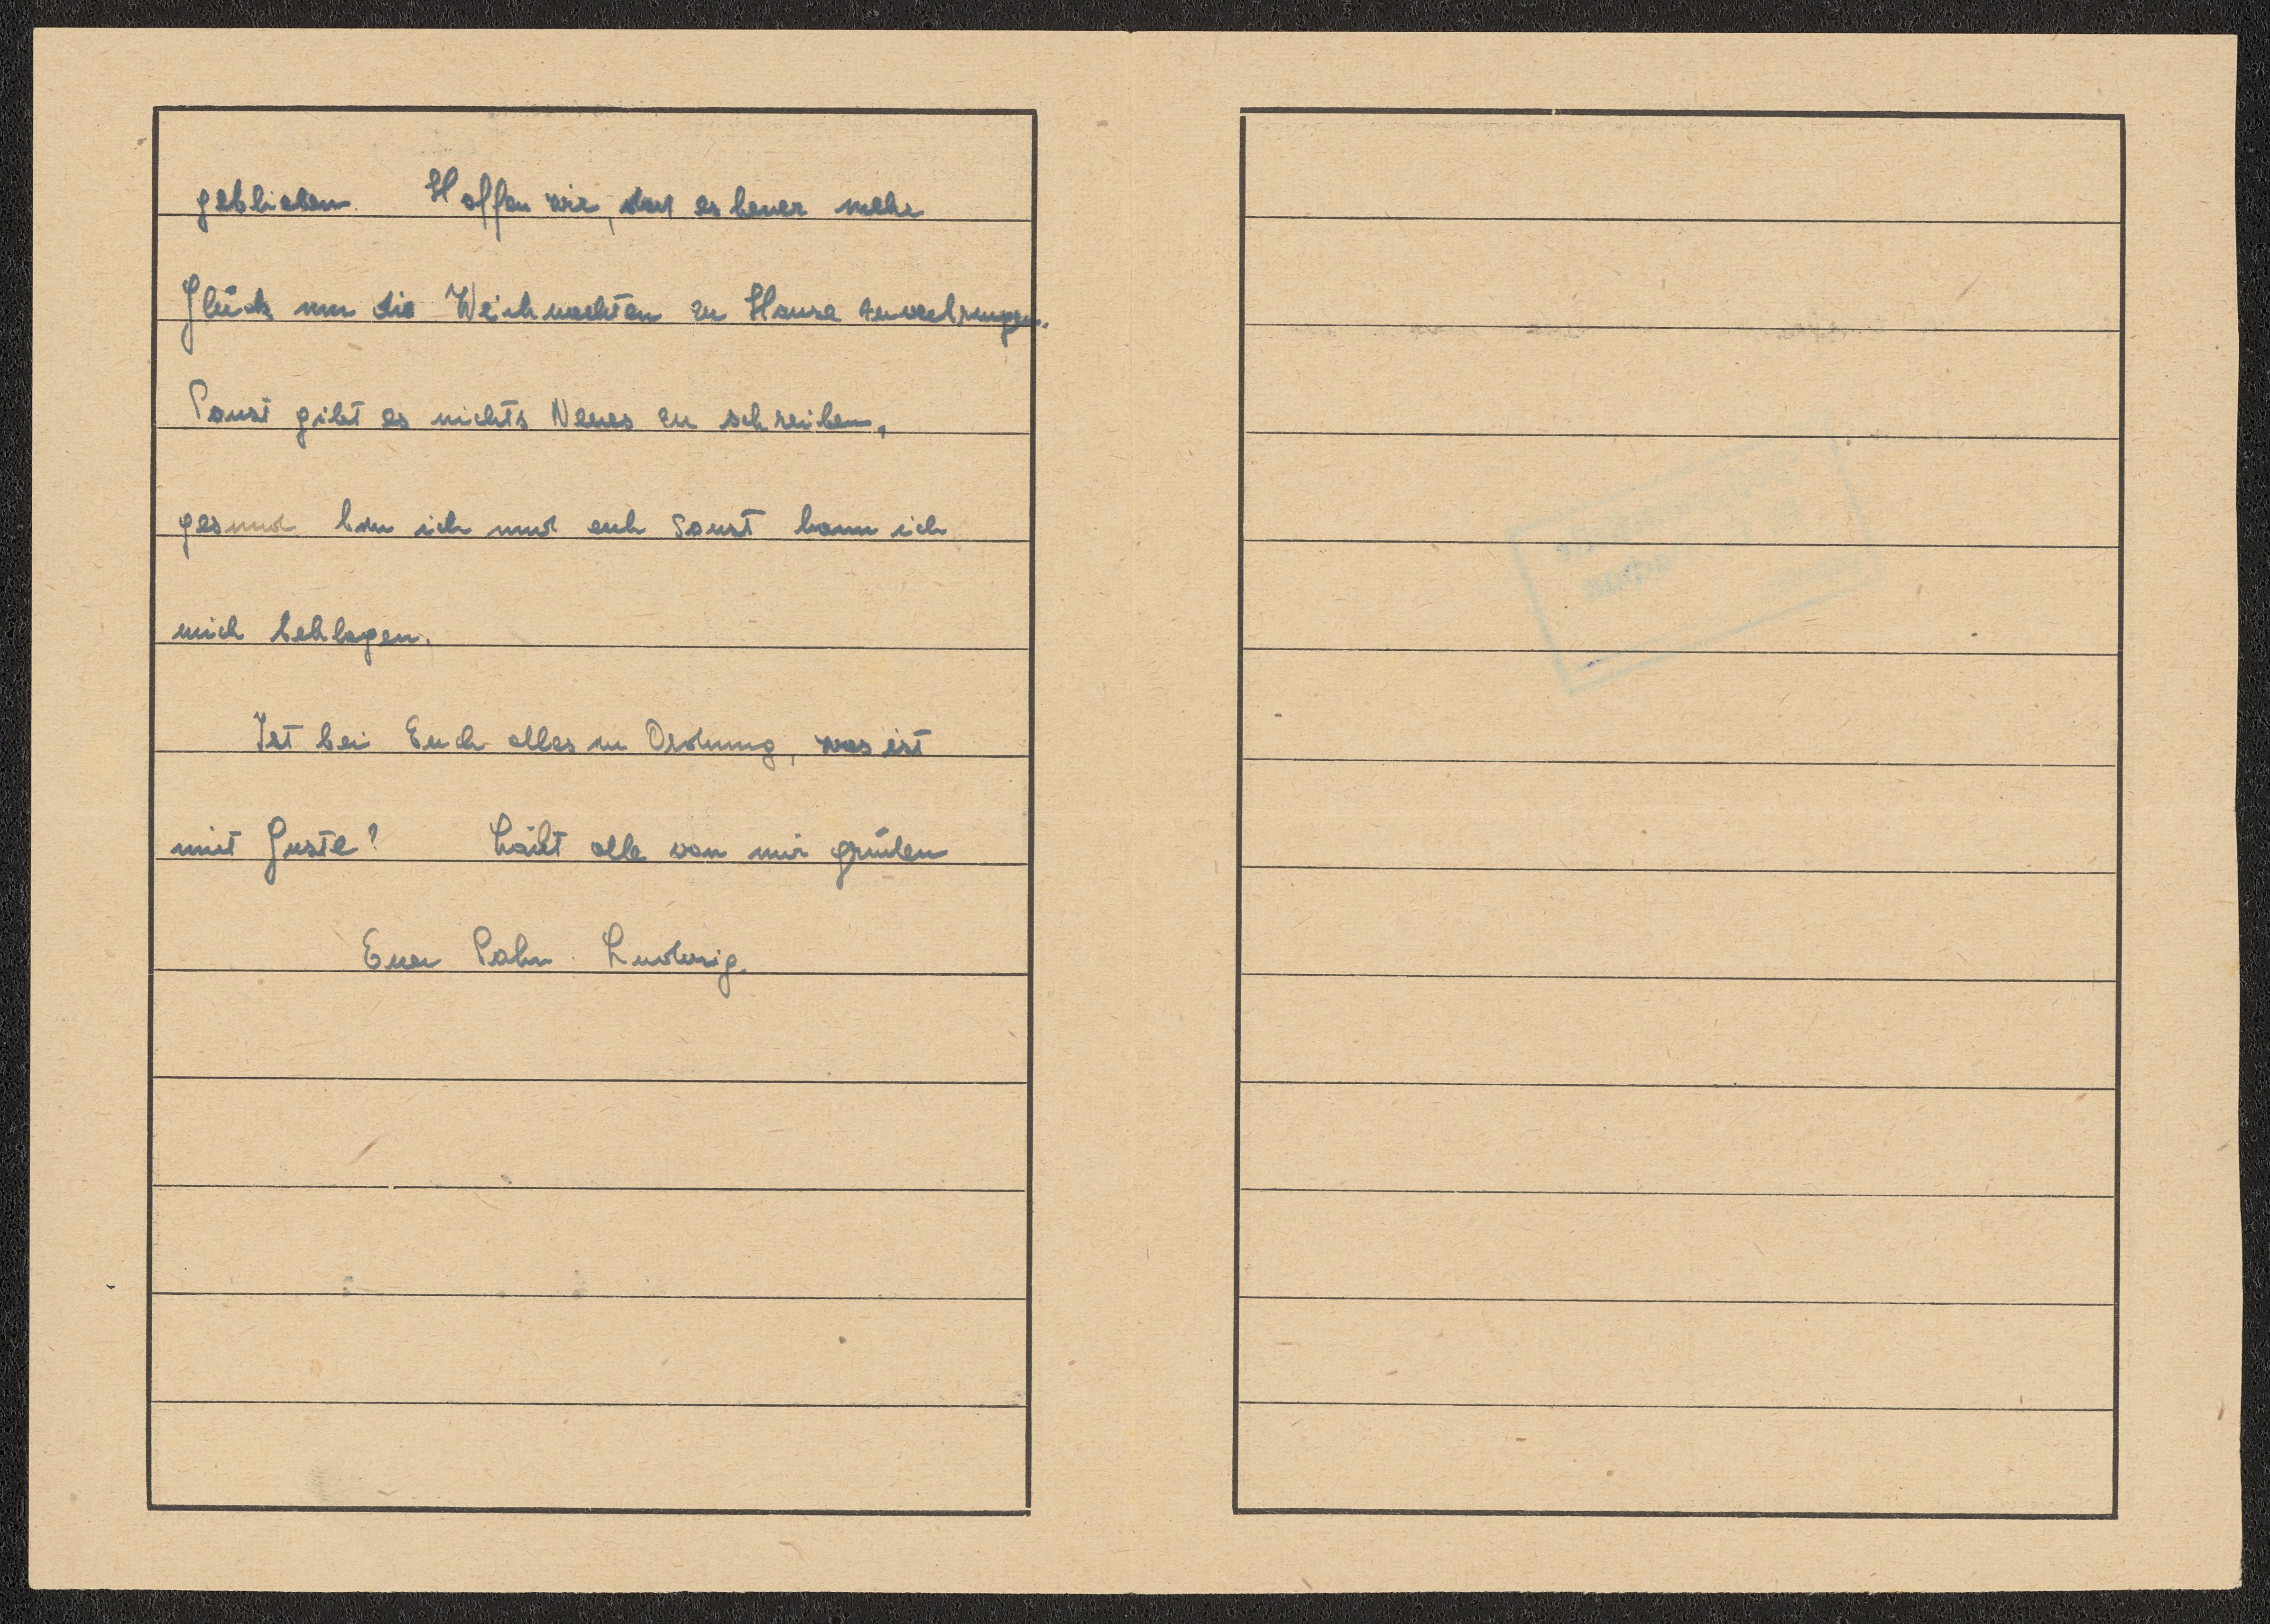 geblieben. Hoffen wir, das es heuer mehr
Glück um die Weihnachten zu Hause zuverbringen.
Sonst gibt es nichts Neues zu schreiben,
gesund bin ich und auch sonst kann ich
mich beklagen.
Ist bei Euch alles in Ordnung, was ist
mit Gustl? Laßt alle von mir grüßen
Euer Sohn Ludwig.